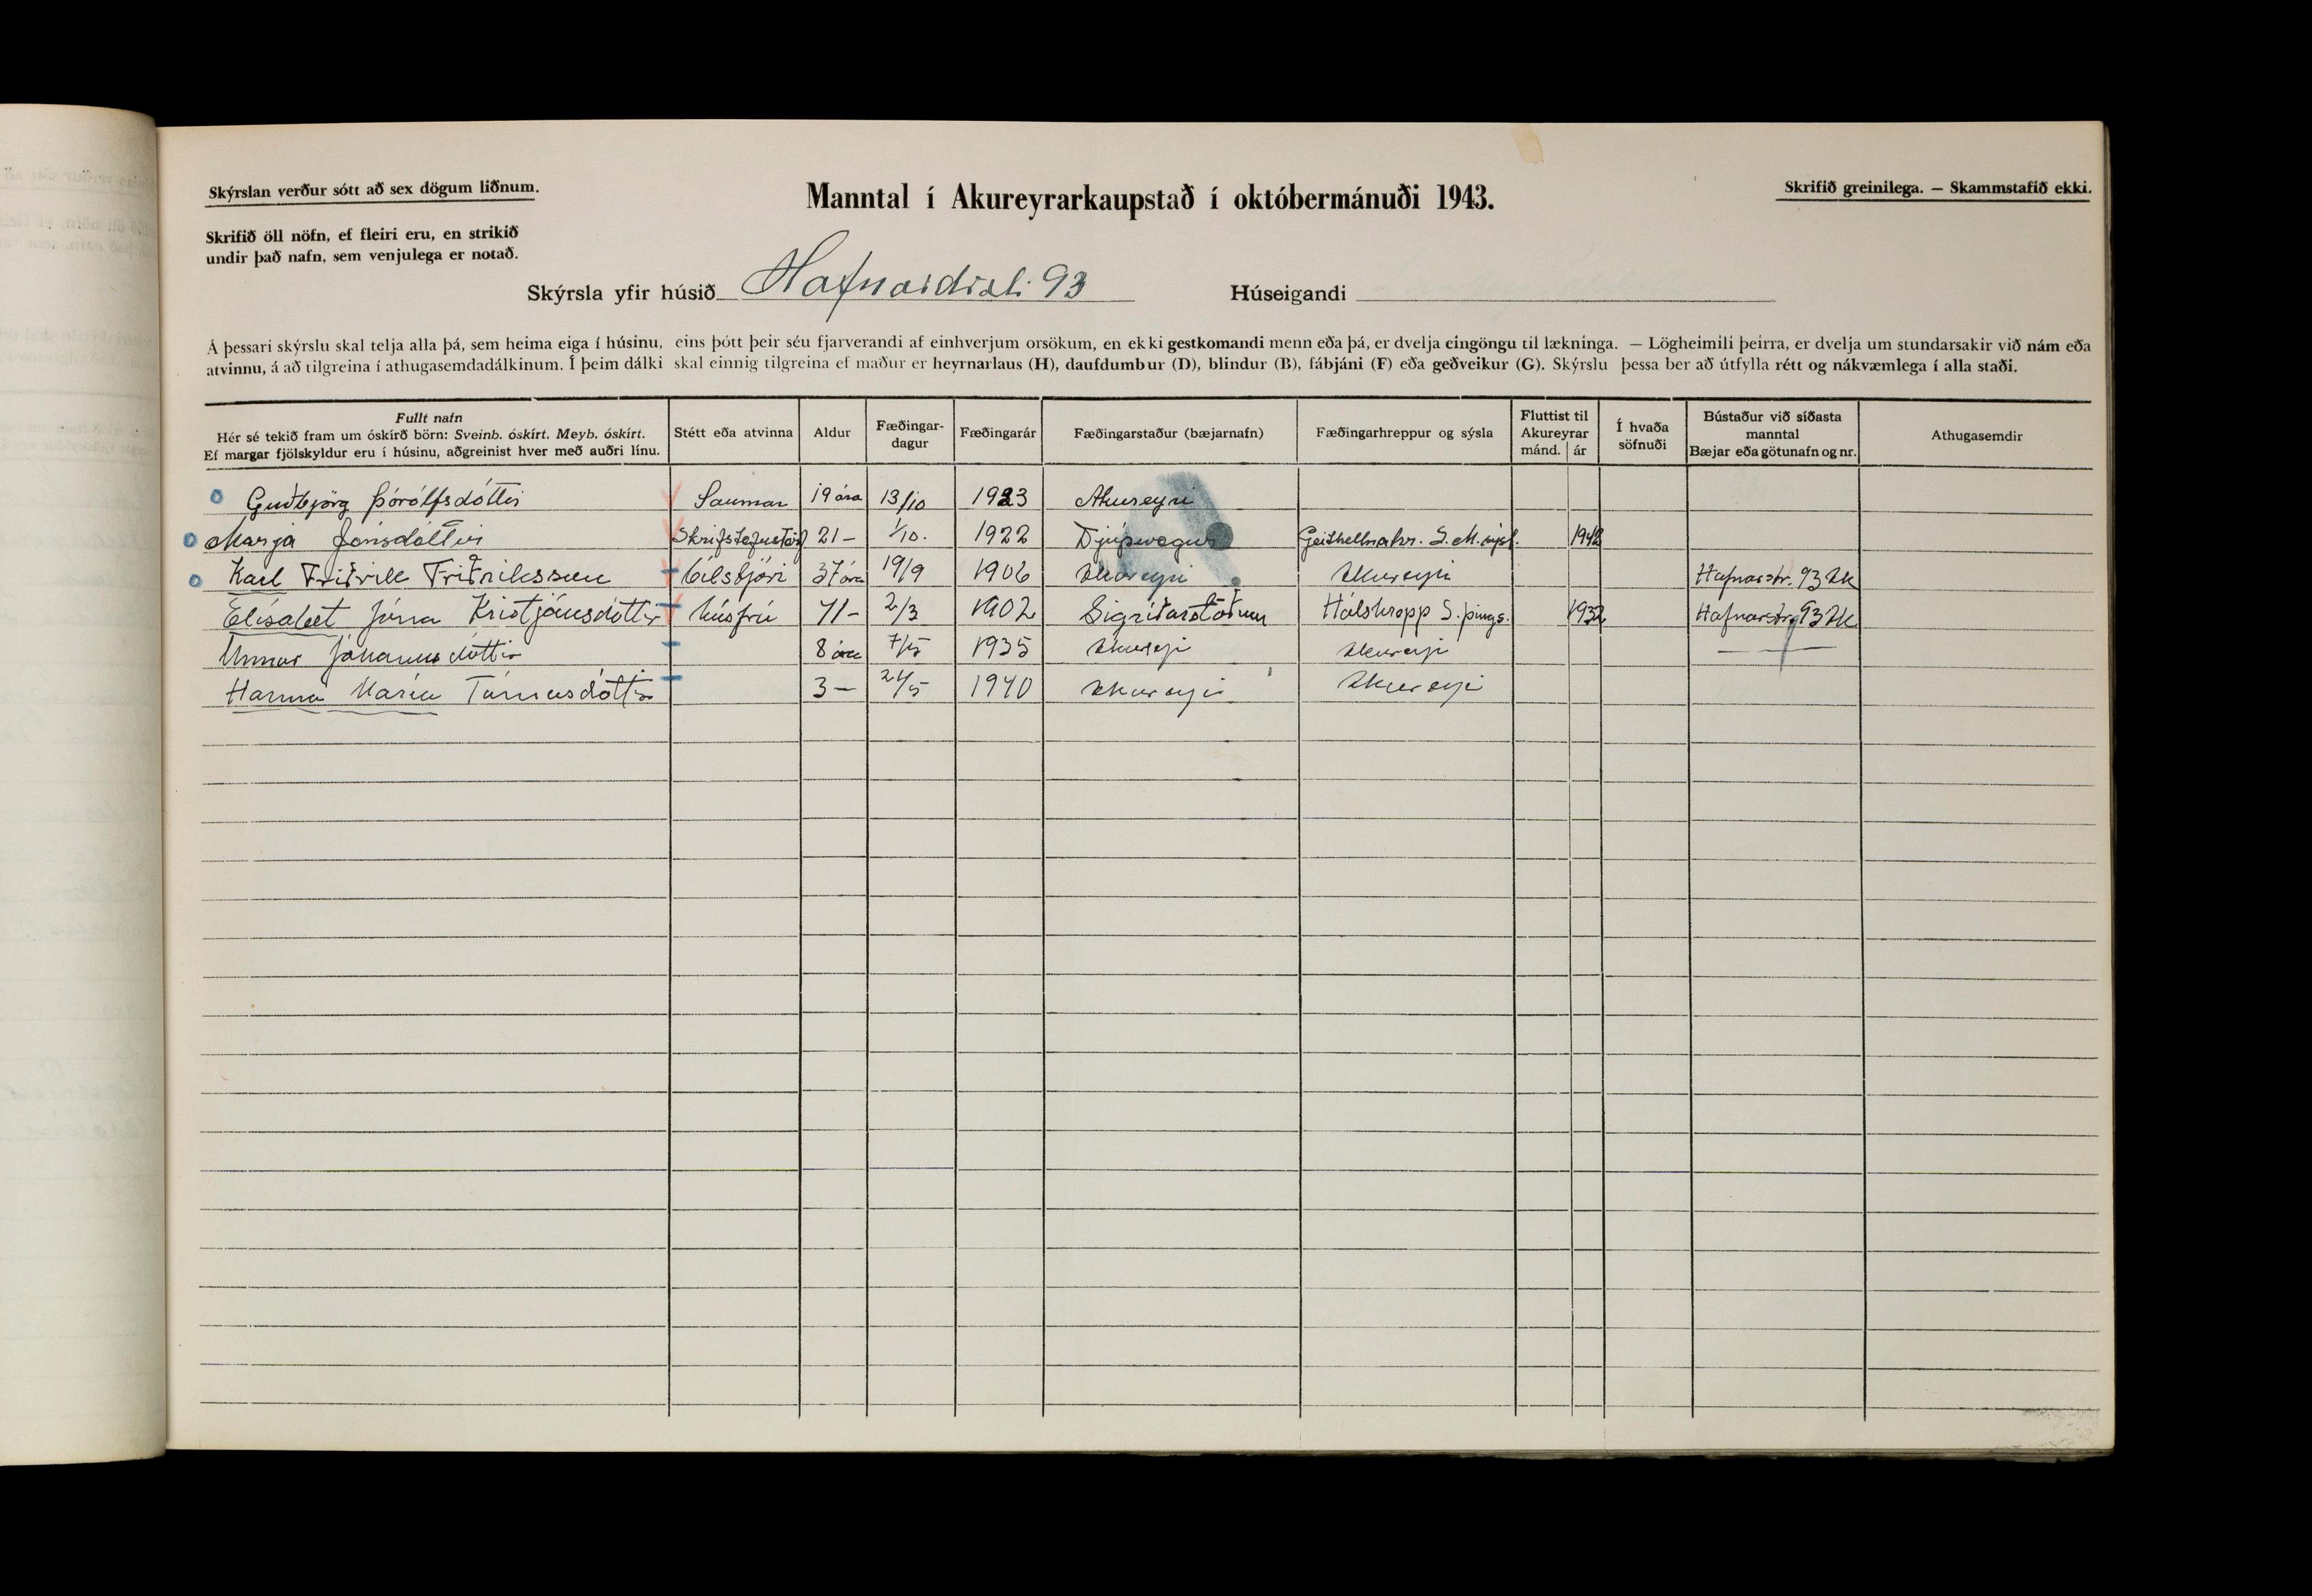 Skýrslan verður sótt að sex dögum liðnum.
Manntal í Akureyrarkaupstað í októbermánuði 1943.
Skrifið greinilega. — Skammstafið ekki.
Skrifið öll nöfn, ef fleiri eru, en strikið
undir það nafn, sem venjulega er notað.
Skýrsla yfir húsið Hafnarstræti 93 Húseigandi
Á þessari skýrslu skal telja alla þá, sem heima eiga í húsinu, eins þótt þeir séu fjarverandi af einhverjum orsökum, en ekki gestkomandi menn eða þá, er dvelja eingöngu til lækninga. — Lögheimili þeirra, er dvelja um stundarsakir við nám eða
atvinnu, á að tilgreina í athugasemdadálkinum. Í þeim dálki skal einnig tilgreina ef maður er heyrnarlaus (H), daufdumbur (D), blindur (B), fábjáni (F) eða geðveikur (G). Skýrslu þessa ber að útfylla rétt og nákvæmlega í alla staði.
Fullt nafn
Hér sé tekið fram um óskírð börn: Sveinb. óskírt. Meyb. óskírt.
Ef margar fjölskyldur eru í húsinu, aðgreinist hver með auðri línu.
Stétt eða atvinna
Aldur
Fæðingar-
dagur
Fæðingarár
Fæðingarstaður (bæjarnafn)
Fæðingarhreppur og sýsla
Fluttist til
Akureyrar
mánd. ár
Í hvaða
söfnuði
Bústaður við síðasta
manntal
Bæjar eða götunafn og nr.
Athugasemdir
Guðbjörg Þórólfsdóttir Saumar 19 ára 13/10 1923 Akureyri
Marja Jónsdóttir 21 – 1/10. 1922 Djúpivogur Geithellnahr. S.M.sýsl. 1942
Karl Friðrik Friðriksson bílstjóri 37 ára 19/9 1906 Akureyri Akureyri Hafnarstr. 93 Ak
Elísabet Jóna Kristjánsdóttir húsfrú 41 – 2/3 1902 Sigríðarstöðum Hálshrepp S. þings. 1932 Hafnarstr. 93 Ak
Unnur Jóhannsdóttir 8 ára 7/5 1935 Akureyri Akureyri —
Hanna María Tómasdóttir 3 – 24/5 1940 Akureyri Akureyri